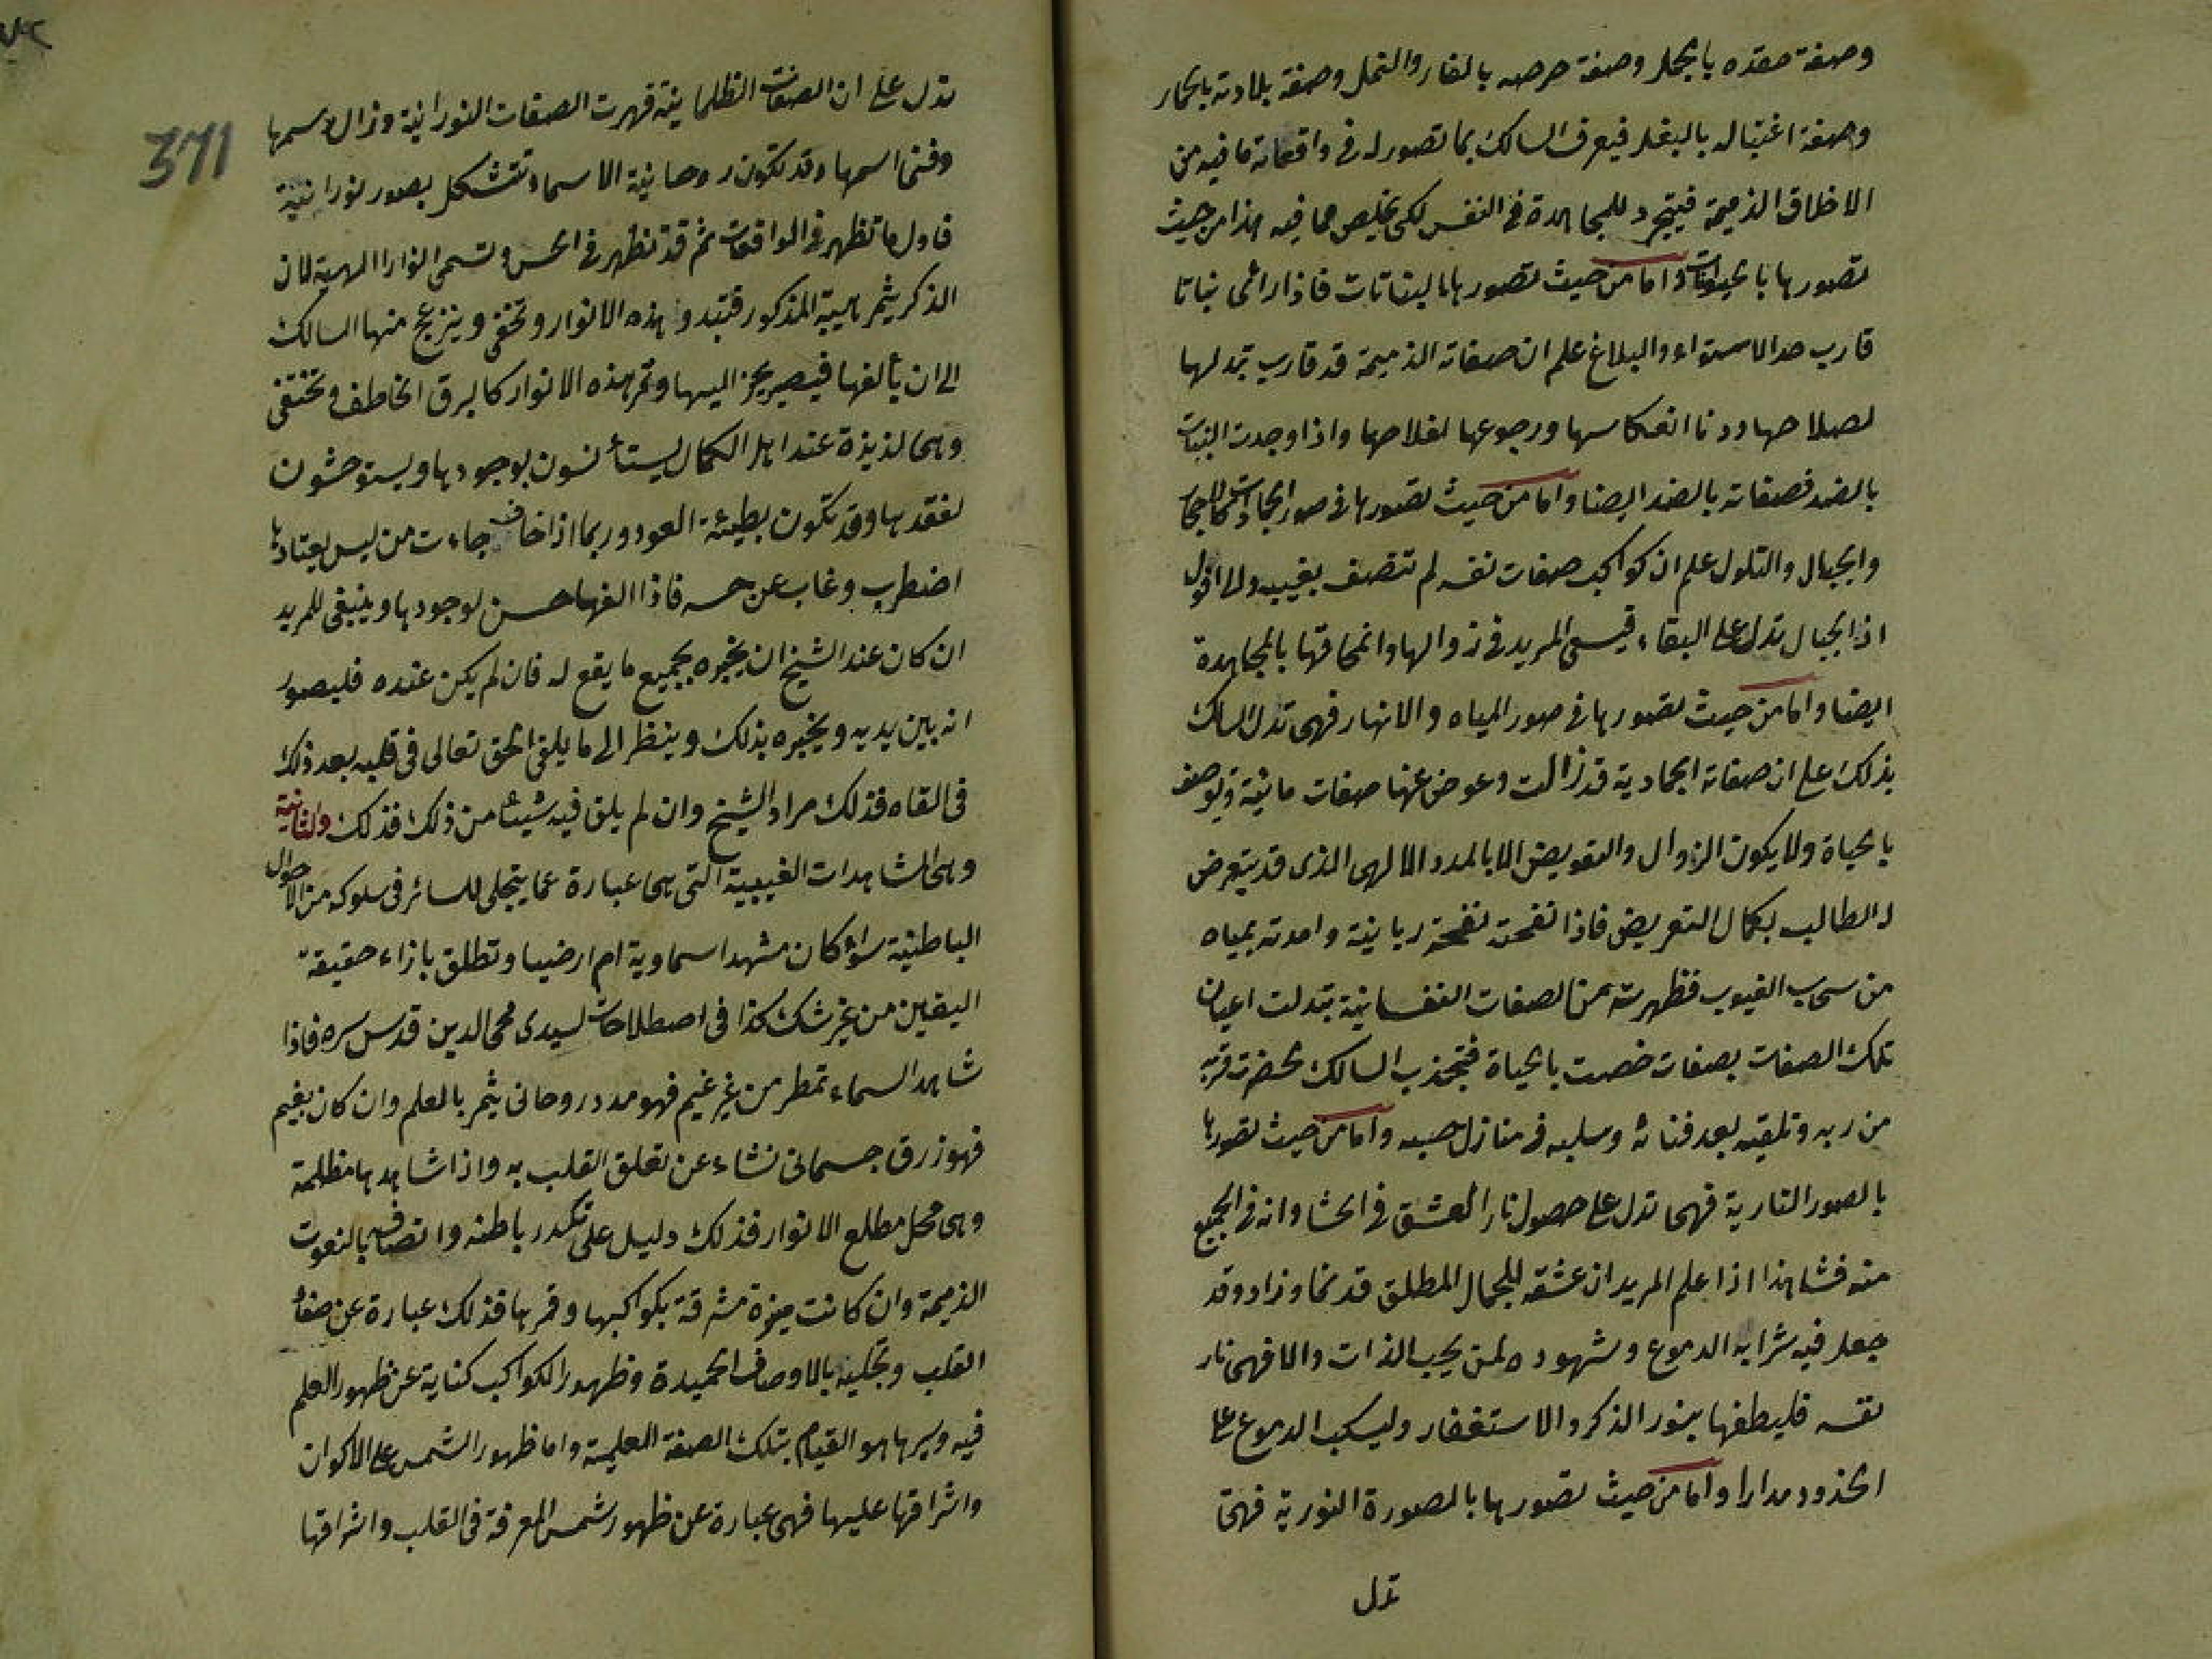 وصفة حقده بالجمل وصفة حرصه بالفار والنمل وصفة بلادته بالحمار
وصفة اغتياله بالبغل فيعرف السالك بما تصور له فى واقعاته ما فيه من
الاخلاق الذميمة فيتجرد للمجاهدة فى النفس لكى يخلص مما فيه هذا من حيث
تصورها بالحيوانات واما من حيث تصورها بالنباتات فاذا رائى نباتا
قارب حد الاستواء والبلاغ علم ان صفاته الذميمة قد قارب تبدلها
لصلاحها ودنا انعكاسها ورجوعها لفلاحها واذا وجدت النبات
بالضد فصفاته بالضد ايضا واما من حيث تصورها فى صور الجمادات كالاحجار
والجبال والتلول علم ان كواكب صفات نفسه لم تتصف بغيبه ولا افول
اذ الجبال تدل على البقاء فيسعى المريد فى زوالها وانمحاقها بالمجاهدة
ايضا واما من حيث تصورها فى صور المياه والانهار فهى تدل السالك
بذلك على ان صفاته الجمادية قد زالت وعوض عنها صفات مائية توصف
بالحياة ولا يكون الزوال والتعويض الا بالمدد الالهى الذى قد يتعرض
له الطالب بكمال التعريض فاذا نفحته نفحة ربانية وامدته بمياه
من سحاب الغيوب فظهرته من الصفات النفسانية تبدلت اعيان
تلك الصفات بصفات خصت بالحياة فتجذب السالك لحضرت قربه
من ربه وتلقيه بعد فنائه وسلبه فى منازل حبه واما من حيث تصورها
بالصور النارية فهى تدل على حصول نار العشق فى الحشا وانه فى الجميع
منه فشا هذا اذا علم المريد ان عشقه للجمال المطلق قد نما وزاد وقد
جعل فيه شرابه الدموع وشهوده لمن يحب الذات والا فهى نار
نفسه فليطفها بنور الذكر والاستغفار وليسكب الدموع على
الخدود مدارا واما من حيث تصورها بالصورة النورية فهى
تدل
371
تدل على ان الصفات الظلمانية قهرت الصفات النورانية وزال رسمها
وفنى اسمها وقد تكون روحانية الاسماء تتشكل بصور نورانية
فاول ما تظهر فى الواقعات ثم قد تظهر فى الحس وتسمى انوارا الهية لان
الذكر يثمر هيبة المذكور فتبدو هذه الانوار وتخفى وينزعج منها السالك
الى ان يألفها فيصير يحن اليها وتمر هذه الانوار كالبرق الخاطف وتختفى
وهى لذيذة عند اهل الكمال يستأنسون بوجودها ويستوحشون
لفقدها وقد تكون بطيئة العود وربما اذا خاف جاءت من ليس يعتادها
اضطرب وغاب عن حسه فاذا الفها حسن لوجودها وينبغى للمريد
ان كان عند الشيخ ان يخبره بجميع ما يقع له فان لم يكن عنده فليصور
انه بين يديه ويخبره بذلك وينظر الى ما يلقى الحق تعالى فى قلبه بعد ذلك
فى القاه فذلك مراد الشيخ وان لم يلق فيه شيئا من ذلك فذلك والثانية
وهى المشاهدات الغيبية التى هى عبارة عما يتجلى للسائر فى سلوكه من الاحوال
الباطنية سواء كان مشهدا سماوية ام ارضيا وتطلق بازاء حقيقة
اليقين من غير شك كذا فى اصطلاحات لسيدى محى الدين قدس سره فاذا
شاهد السماء تمطر من غير غيم فهو مدد روحانى يثمر بالعلم وان كان بغيم
فهو رزق جسمانى نشاء عن تعلق القلب به واذا شاهدها مظلمة
وهى محل مطلع الانوار فذلك دليل على تكدر باطنه واتصافه بالنعوت
الذميمة وان كانت منيرة مشرقة بكواكبها وقمرها فذلك عبارة عن صفاء
القلب وتحليه بالاوصاف الحميدة وظهور الكواكب كناية عن ظهور العلم
فيه وسيرها هو القيام بتلك الصفة العلمية واما ظهور الشمس على الاكوان
واشراقها عليها فهى عبارة عن ظهور شمس المعرفة فى القلب واشراقها